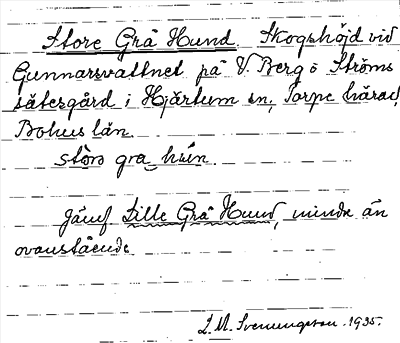 Store Grå Hund. Skogshöjd vid
Gunnarsvattnet på V. Berg o Ströms
sätesgård i Hjärtum sn, Torpe härad,
Bohus län.
stōrə gra_ hun.
Jämf Lille Grå Hund, mindre än
ovanstående
L. M. Svenungsson. 1935.